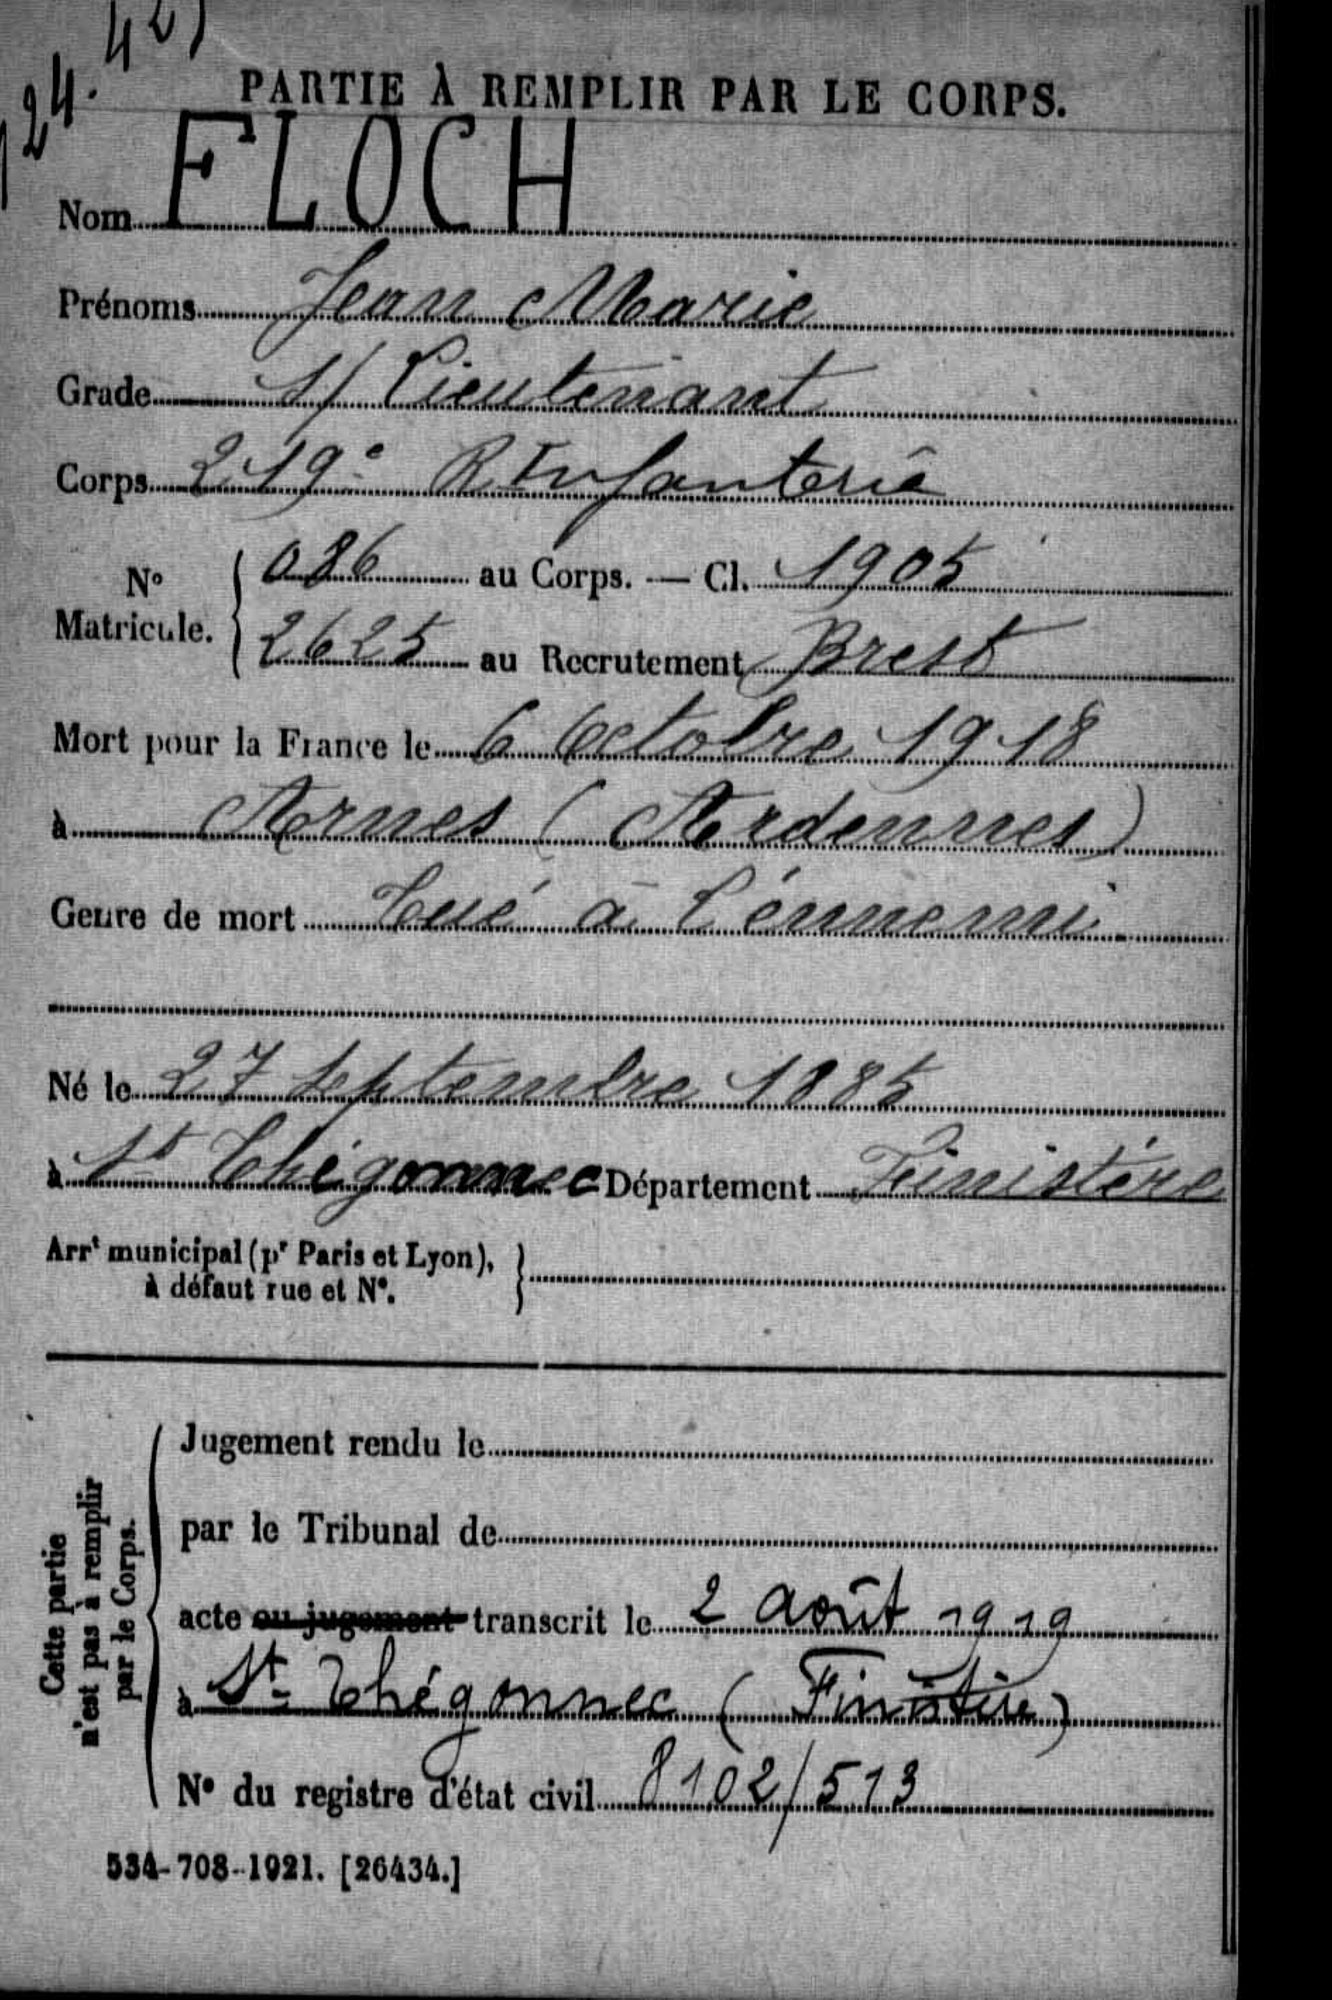 124.421
PARTIE À REMPLIR PAR LE CORPS.
Nom FLOCH
Prénoms Jean Marie
Grade S/ Lieutenant
Corps 219e R Infanterie
No Matricule. { 086 au Corps. — Cl. 1905
2625 au Recrutement Brest
Mort pour la France le 6 Octobre 1918
à Arnes (Ardennes)
Genre de mort Tué à l'énnemi
Né le 27 Septembre 1885
à St Thégonnec Département Finistère
Arrt municipal (pr Paris et Lyon), à défaut rue et No. }
Cette partie n'est pas à remplir par le Corps.
Jugement rendu le
par le Tribunal de
acte ou jugement transcrit le 2 août 1919
à St- Thégonnec (Finistère)
No du registre d'état civil 8102/513
534-708-1921. [26434.]